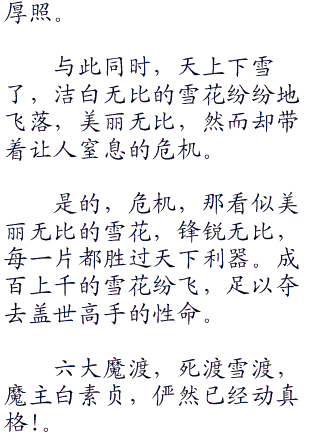 厚照。
与此同时，天上下雪
了，洁白无比的雪花纷纷地
飞落，美丽无比，然而却带
着让人窒息的危机。
是的，危机，那看似美
丽无比的雪花，锋锐无比，
每一片都胜过天下利器。成
百上千的雪花纷飞，足以夺
去盖世高手的性命。
六大魔渡，死渡雪渡，
魔主白素贞，俨然已经动真
格!。